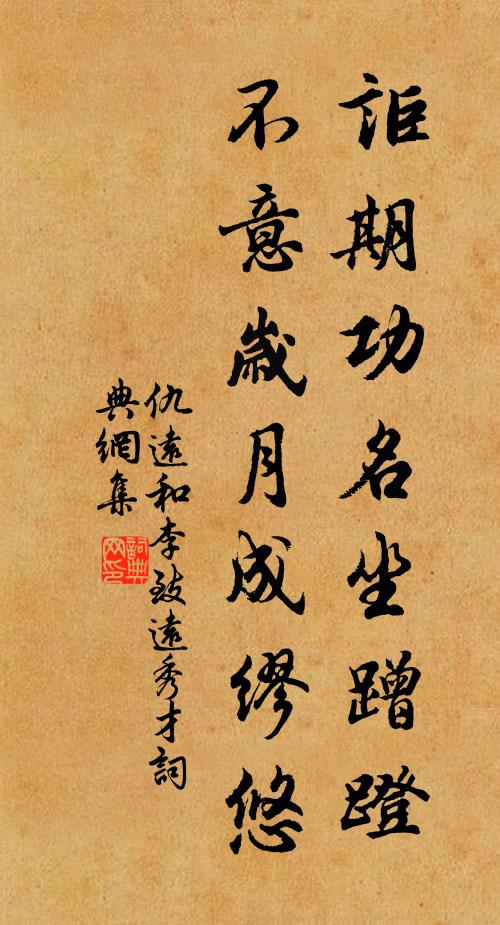 詎期功名坐蹭蹬
不意歲月成繆悠
仇遠和李致遠秀才詞
典網集
詞典網印